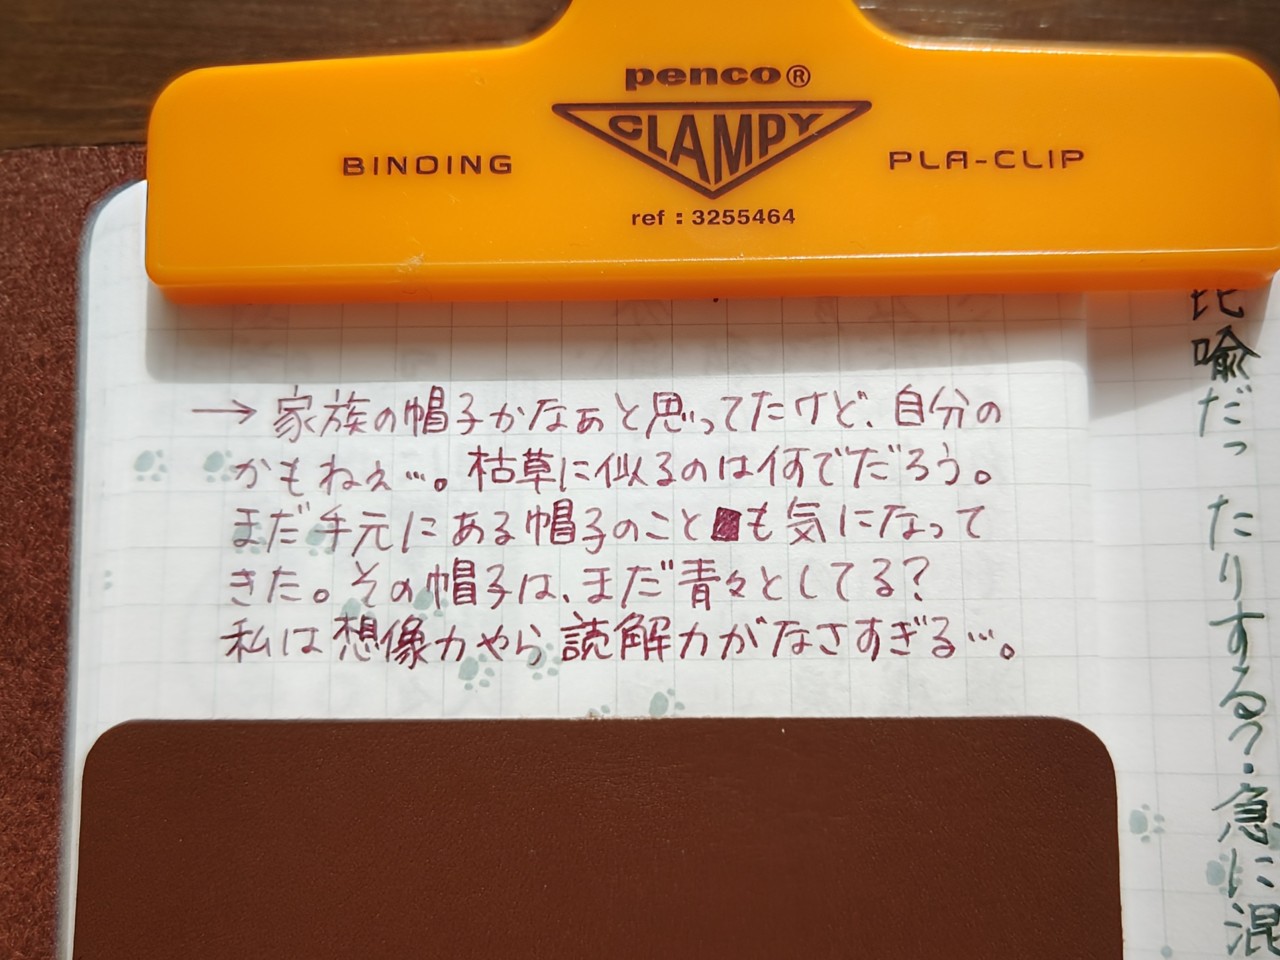 penco®
CLAMPY
BINDING
PLA-CLIP
ref : 3255464
→家族の帽子かなぁと思ってたけど、自分の
かもねぇ…。枯草に似るのは何でだろう。
まだ手元にある帽子のこと も気になって
きた。その帽子は、まだ青々としてる?
私は想像力やら読解力がなさすぎる…。
比喩だったりする?・急に混